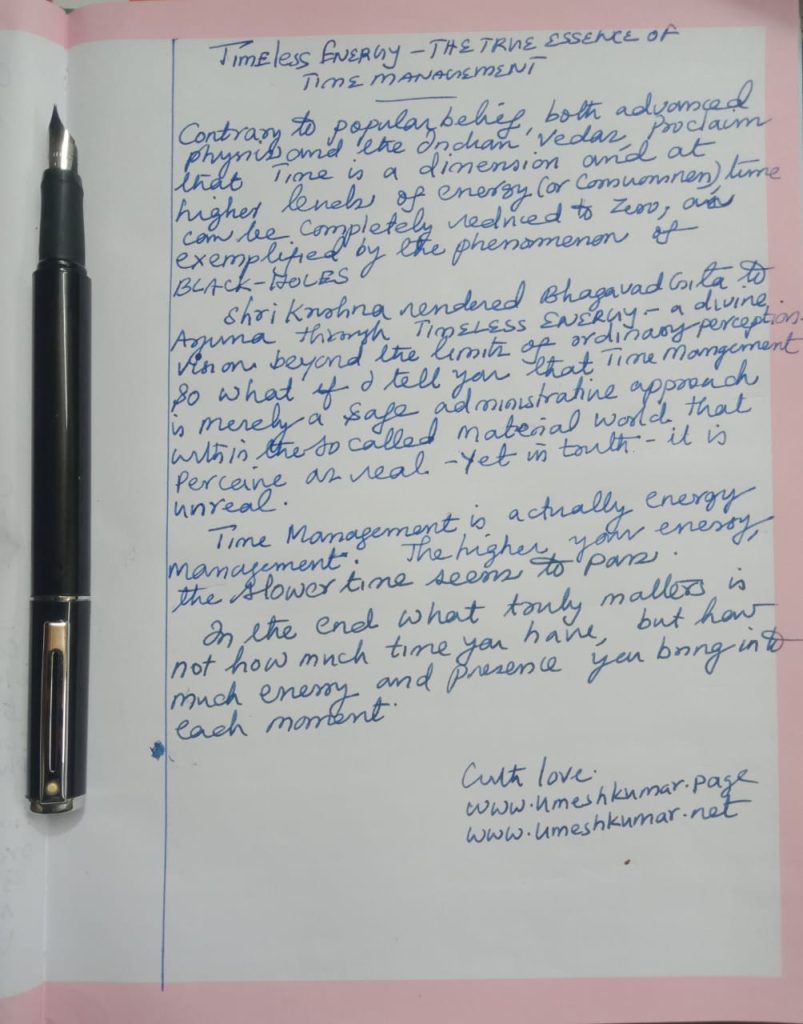 TIMELESS ENERGY – THE TRUE ESSENCE OF
TIME MANAGEMENT
Contrary to popular belief, both advanced
physics and the Indian Vedas, proclaim
that Time is a dimension and at
higher levels of energy (or Consciousness), time
can be completely reduced to Zero, as
exemplified by the phenomenon of
BLACK-HOLES
Shri Krishna rendered Bhagavad Gita to
Arjuna through TIMELESS ENERGY – a divine
vision beyond the limits of ordinary perception.
So what if I tell you that Time Mangement
is merely a safe administrative approach
within the so called material world that
Perceive as real - Yet in truth - it is
unreal.
Time Management is actually energy
management. The higher your energy,
the slower time seems to pass.
In the end what truly matters is
not how much time you have, but how
much energy and presence you bring into
each moment.
With love.
www.umeshkumar.page
www.umeshkumar.net